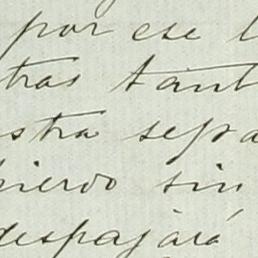 por ese l
tras tant
stra sepa
pierdo sin
despajará